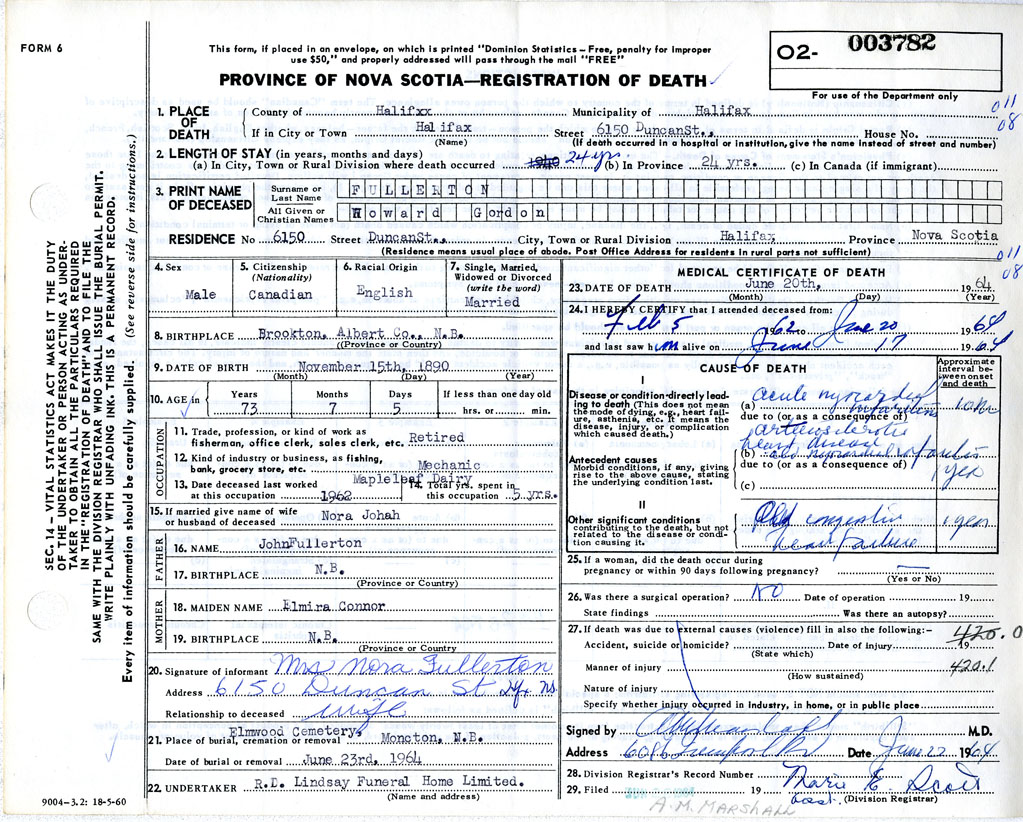 FORM 6
This form, if placed in an envelope, on which is printed "Dominion Statistics – Free, penalty for improper
use $50," and properly addressed will pass through the mail "FREE"
PROVINCE OF NOVA SCOTIA—REGISTRATION OF DEATH
02- 003782
For use of the Department only
011
08
1. PLACE OF DEATH
County of Halifxx Municipality of Halifax
If in City or Town Halifax Street 6150 DuncanSt.. House No.
(Name) (If death occurred in a hospital or institution, give the name instead of street and number)
2. LENGTH OF STAY (in years, months and days)
(a) In City, Town or Rural Division where death occurred 1940 24 yrs. (b) In Province 24 yrs. (c) In Canada (if immigrant)
3. PRINT NAME OF DECEASED
Surname or Last Name FULLERTON
All Given or Christian Names Howard Gordon
RESIDENCE No 6150 Street DuncanSt.. City, Town or Rural Division Halifax Province Nova Scotia
(Residence means usual place of abode. Post Office Address for residents in rural parts not sufficient)
011
08
4. Sex
Male
5. Citizenship
(Nationality)
Canadian
6. Racial Origin
English
7. Single, Married,
Widowed or Divorced
(write the word)
Married
8. BIRTHPLACE Brookton, Albert Co., N.B.
(Province or Country)
9. DATE OF BIRTH November 15th, 1890
(Month) (Day) (Year)
10. AGE in Years Months Days If less than one day old
73 7 5 hrs. or min.
OCCUPATION
11. Trade, profession, or kind of work as
fisherman, office clerk, sales clerk, etc. Retired
12. Kind of industry or business, as fishing,
bank, grocery store, etc. Mechanic
Mapleleaf Dairy
13. Date deceased last worked
at this occupation 1962
14. Total yrs. spent in
this occupation 5 yrs.
15. If married give name of wife
or husband of deceased Nora Johah
FATHER
16. NAME JohnFullerton
17. BIRTHPLACE N.B.
(Province or Country)
MOTHER
18. MAIDEN NAME Elmira Connor
19. BIRTHPLACE N.B.
(Province or Country
20. Signature of informant Mrs Nora Fullerton
Address 6150 Duncan St Hfx NS
Relationship to deceased wife
Elmwood Cemetery,
21. Place of burial, cremation or removal Moncton, N.B.
Date of burial or removal June 23rd, 1964
22. UNDERTAKER R.D. Lindsay Funeral Home Limited.
(Name and address)
MEDICAL CERTIFICATE OF DEATH
23. DATE OF DEATH June 20th, 1964
(Month) (Day) (Year)
24. I HEREBY CERTIFY that I attended deceased from:
Feb 5 1962 to June 20 1964
and last saw him alive on June 17 1964
CAUSE OF DEATH
Approximate
interval be-
tween onset
and death
I
Disease or condition directly lead-
ing to death (This does not mean
the mode of dying, e.g., heart fail-
ure, asthenia, etc. It means the
disease, injury, or complication
which caused death.)
(a) acute myocardial
infarction
due to (or as a consequence of)
arteriosclerotic
heart disease
Antecedent causes
Morbid conditions, if any, giving
rise to the above cause, stating
the underlying condition last.
(b) old myocardial infarction
due to (or as a consequence of)
1 year
(c)
II
Other significant conditions
contributing to the death, but not
related to the disease or condi-
tion causing it.
congestive
heart failure
1 year
25. If a woman, did the death occur during
pregnancy or within 90 days following pregnancy? —
(Yes or No)
26. Was there a surgical operation? NO Date of operation 19
State findings Was there an autopsy?
27. If death was due to external causes (violence) fill in also the following:– 420.0
Accident, suicide or homicide? Date of injury 19
(State which)
Manner of injury 420.1
(How sustained)
Nature of injury
Specify whether injury occurred in industry, in home, or in public place
Signed by M.D.
Address 6086 Date June 22 1964
28. Division Registrar's Record Number
29. Filed 19 Marie E. Scott
(Division Registrar)
A.M. MARSHALL
SEC. 14 – VITAL STATISTICS ACT MAKES IT THE DUTY
OF THE UNDERTAKER OR PERSON ACTING AS UNDER-
TAKER TO OBTAIN ALL THE PARTICULARS REQUIRED
IN THE "REGISTRATION OF DEATH" AND TO FILE THE
SAME WITH THE DIVISION REGISTRAR WHO SHALL ISSUE THE BURIAL PERMIT.
WRITE PLAINLY WITH UNFADING INK. THIS IS A PERMANENT RECORD.
Every item of information should be carefully supplied. (See reverse side for instructions.)
9004–3.2: 18-5-60